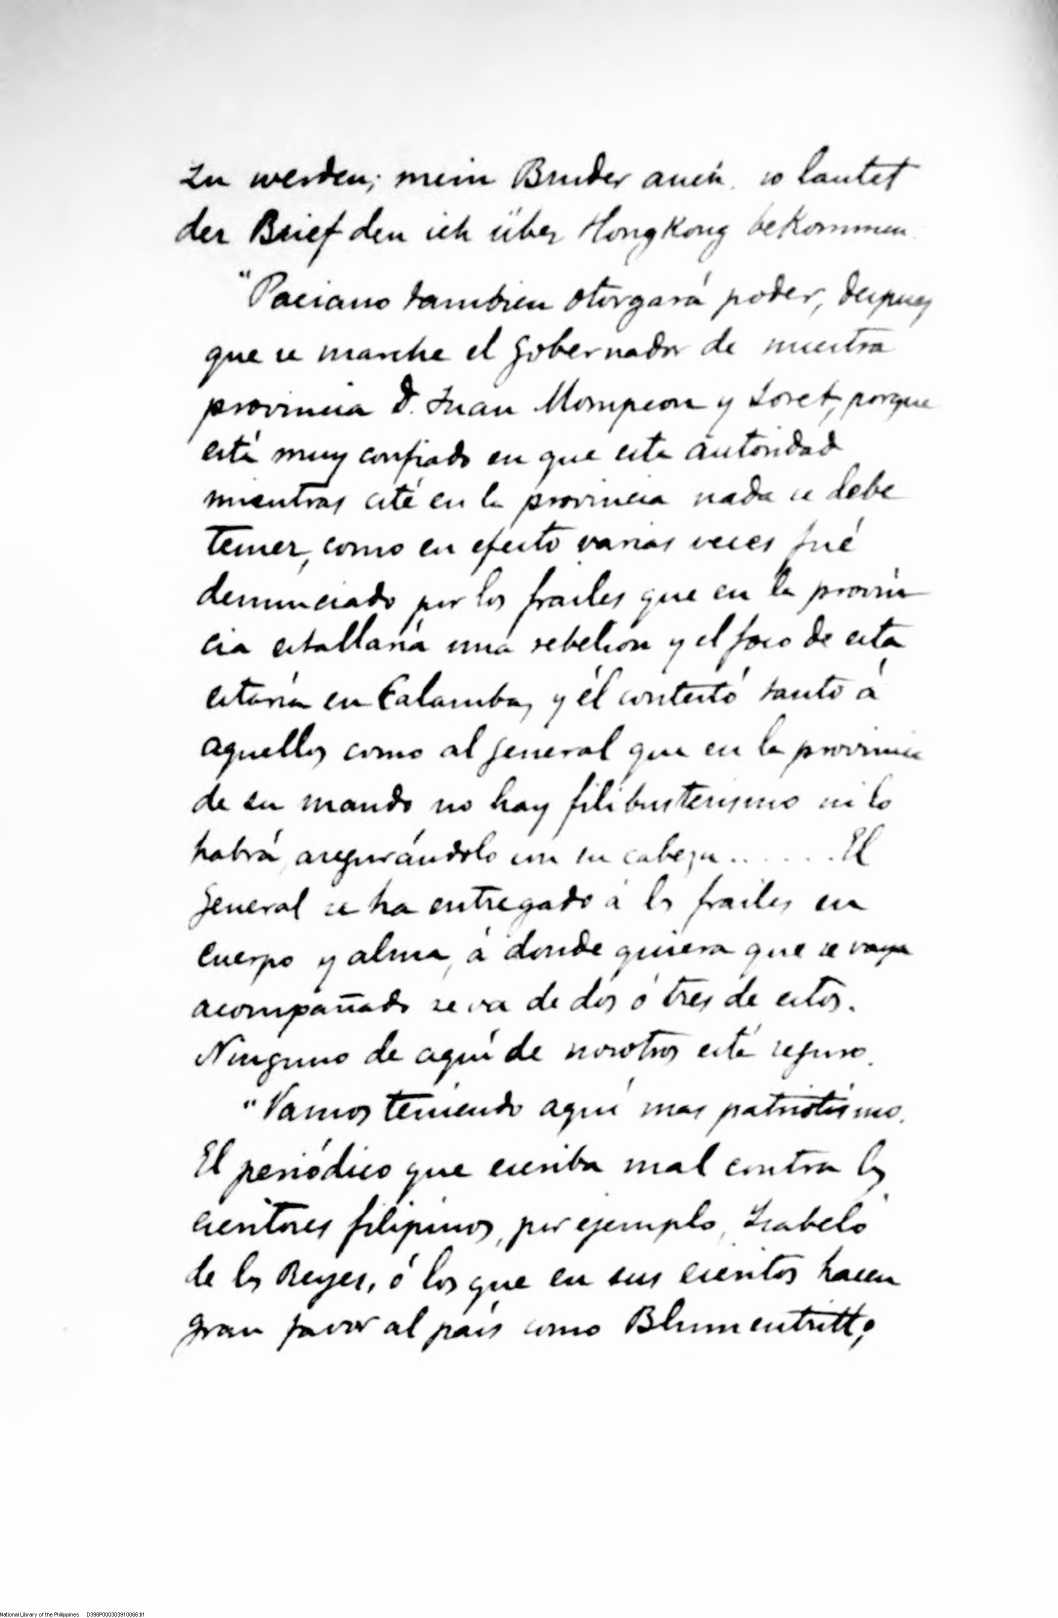 zu werden; mein Bruder auch. so lautet
der Brief den ich über HongKong beKommen.
"Paciano tambien otorgará poder, despues
que se marche el Gobernador de nuestra
provincia D. Juan Mompeon y Loret, porque
está muy confiado en que esta autoridad
mientras esté en la provincia nada se debe
temer, como en efecto varias veces fué
denunciado por los frailes que en la provin
cia estallaria una rebelion y el foco de esta
estaria en Calamba, y él contestó tanto á
aquellos como al General que en la provincia
de su mando no hay filibusterismo ni lo
habrá, asegurándolo con su cabeza . . . . . . El
General se ha entregado á los frailes en
cuerpo y alma, á donde quiera que se vaya
acompañado se va de dos ó tres de estos.
Ninguno de aquí de nosotros está seguro.
"Vamos teniendo aquí mas patriotismo.
El periódico que escriba mal contra los
escritores filipinos, por ejemplo, Isabelo
de los Reyes, ó los que en sus escritos hacen
gran favor al país como Blumentritt,
National Library of the Philippines